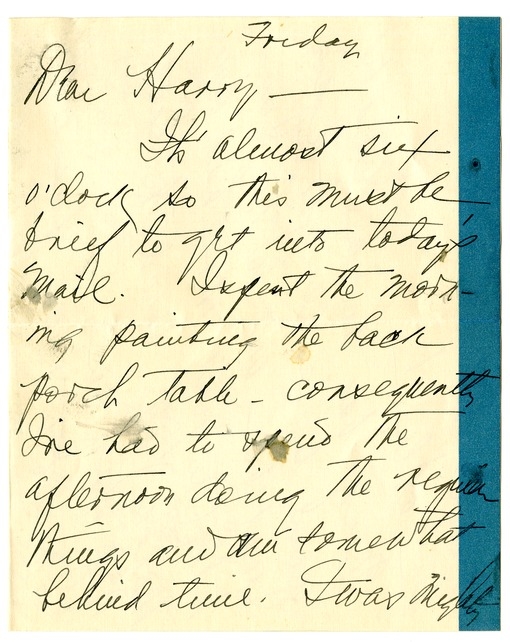 Friday
Dear Harry —
It's almost six
o'clock so this must be
brief to get into today's
mail. I spent the morn-
ing painting the back
porch table - consequently
I've had to spend the
afternoon doing the regular
things and am somewhat
behind time. I was mighty